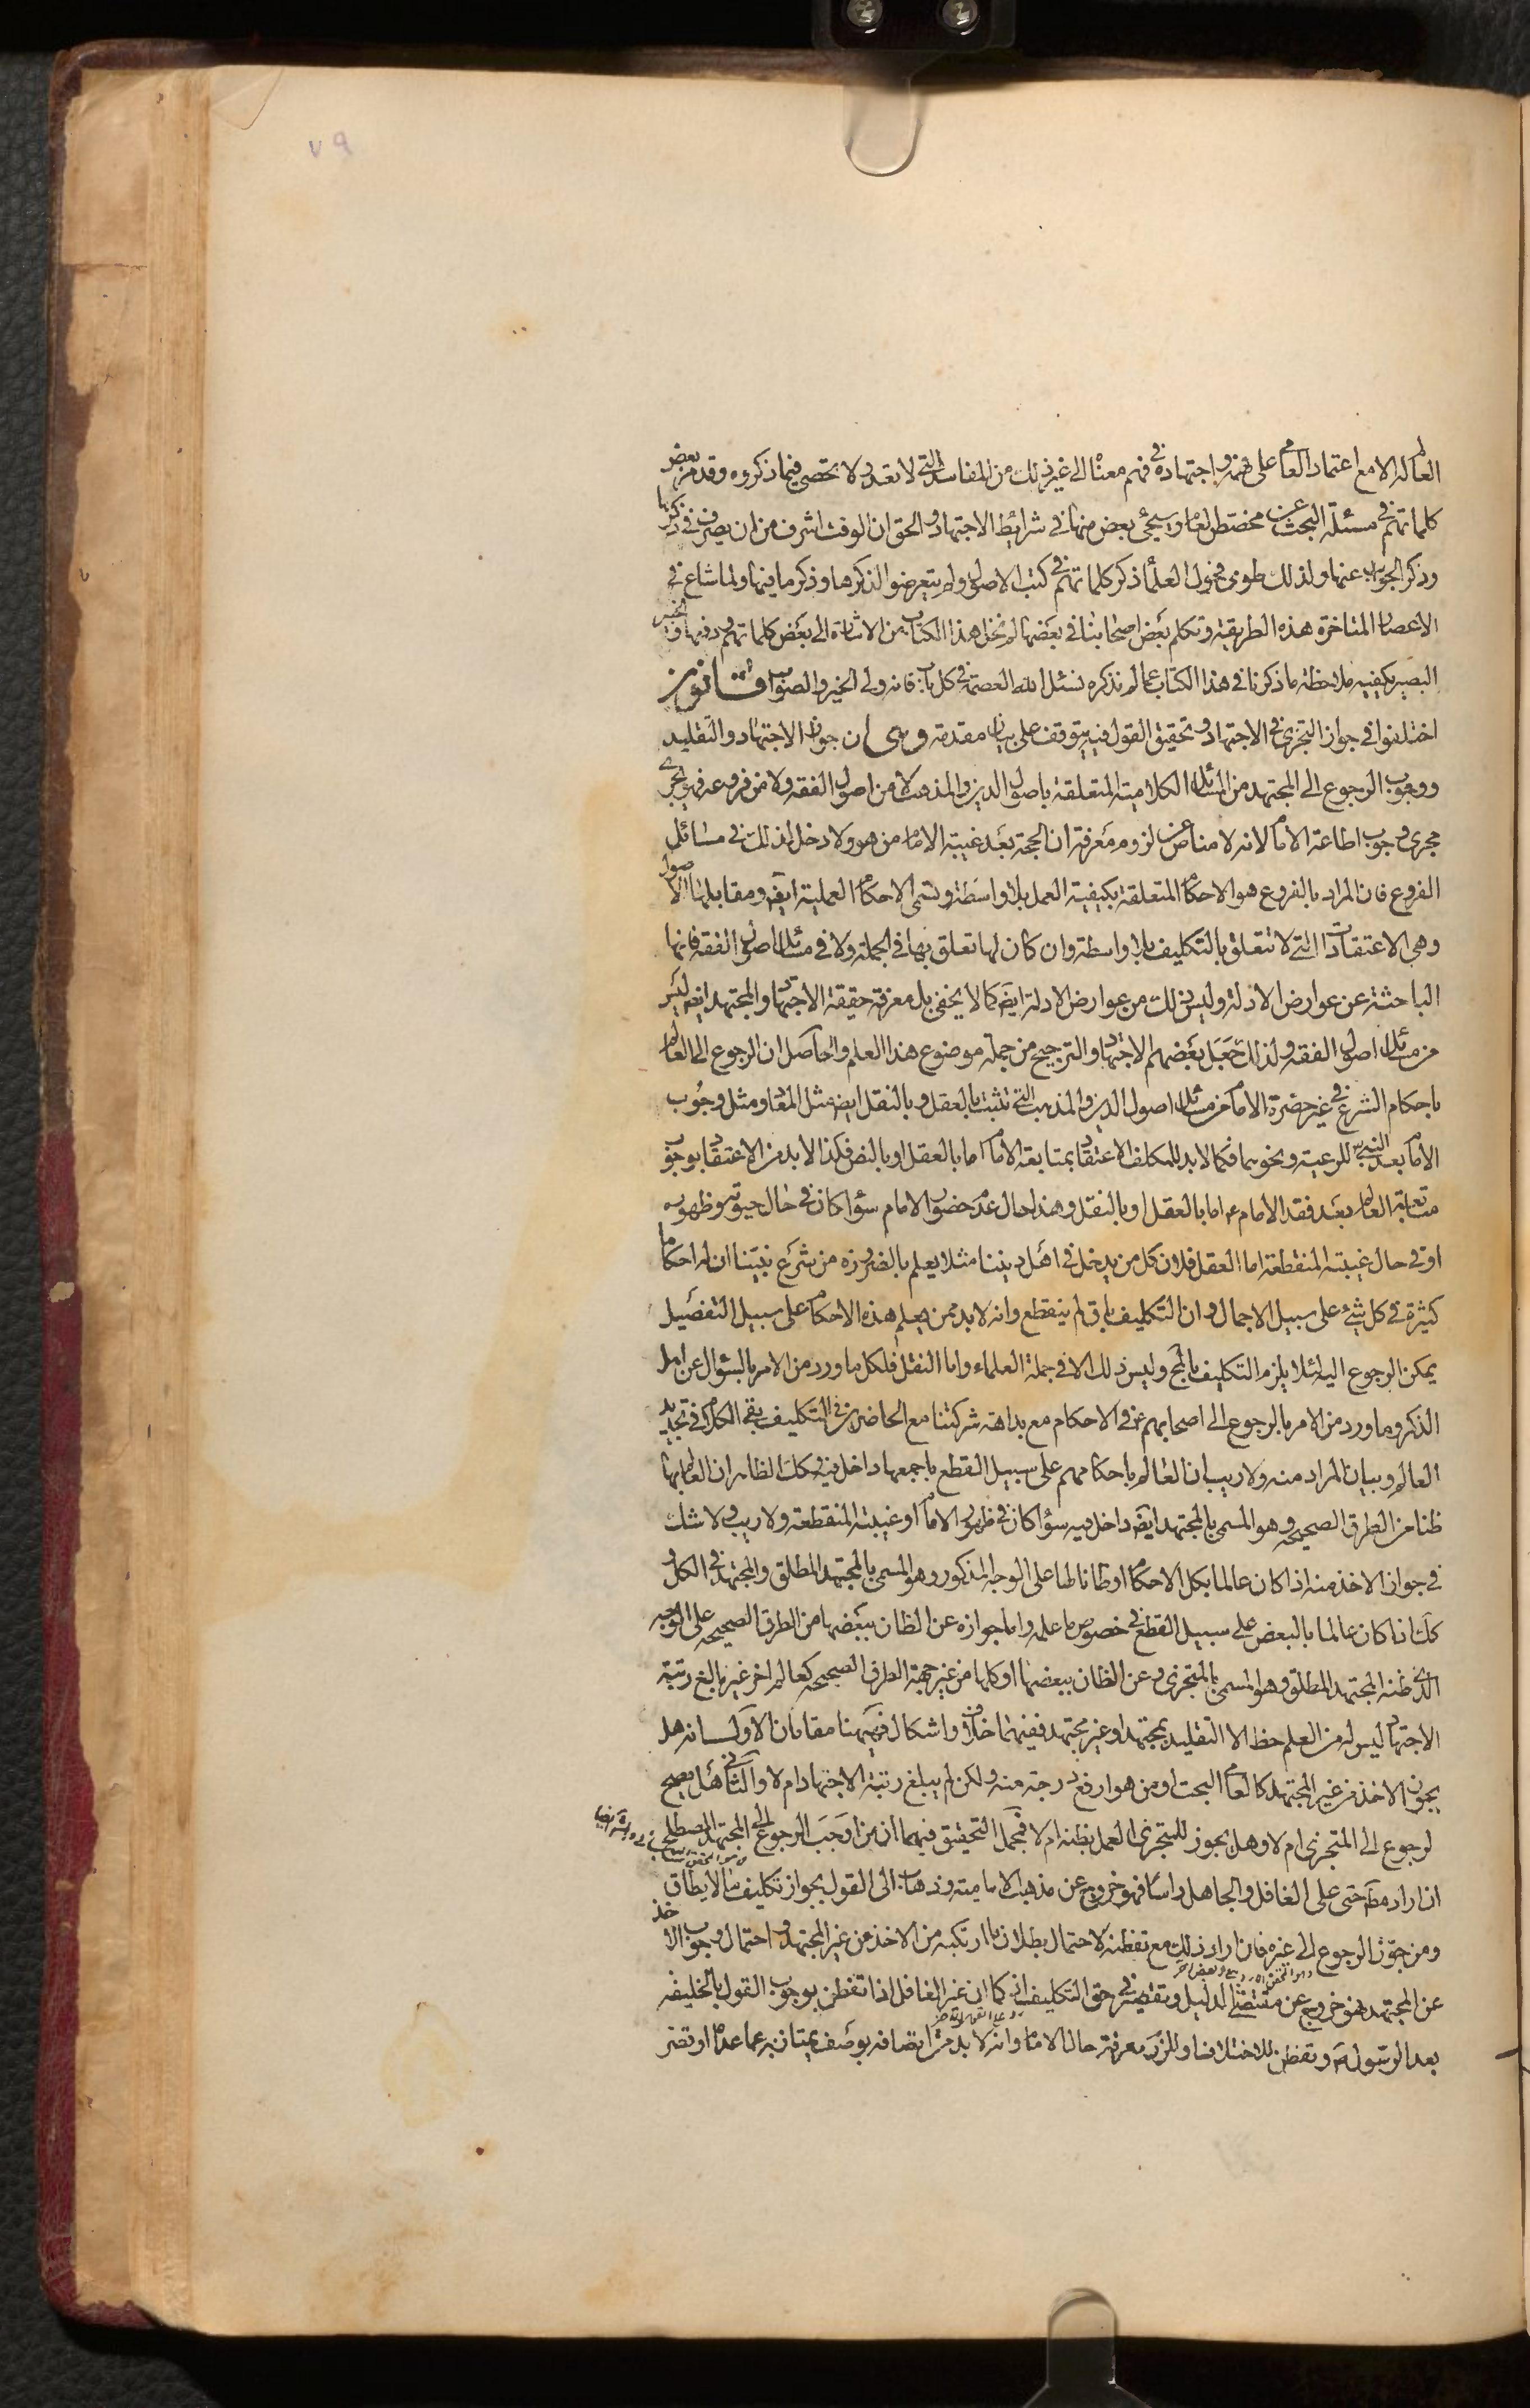 ٧٩
العالم له الا مع اعتماد العامي على فهمه واجتهاده في فهم معناه الى غير ذلك من المفاسد التي لا تعد ولا تحصى فيما ذكروه وقد مر بعض
كلماتهم في مسئلة البحث عن مخصص العام وسيجئ بعض منها في شرائط الاجتهاد والحق ان الوقت اشرف من ان يصرف في ذكرها
وذكر الجواب عنها ولذلك طوى فحول العلماء ذكر كلماتهم في كتب الاصول ولم يتعرضوا لذكرها وذكر ما فيها ولما شاع في
الاعصار المتاخرة هذه الطريقة وتكلم بعض اصحابنا في بعضها لم نخل هذا الكتاب من الاشارة الى بعض كلماتهم ودفعها والخبير
البصير يكفيه ملاحظة ما ذكرنا في هذا الكتاب عما لم نذكره نسئل الله العصمة في كل باب فانه ولي الخير والصواب قانون
اختلفوا في جواز التجزي في الاجتهاد وتحقيق القول فيه يتوقف على بيان مقدمة وهي ان جواز الاجتهاد والتقليد
ووجوب الرجوع الى المجتهد من المسائل الكلامية المتعلقة باصول الدين والمذهب لا من اصول الفقه ولا من فروعه فهو يجري
مجرى وجوب اطاعة الامام لانه لا مناص عن لزوم معرفة ان الحجة بعد غيبة الامام من هو ولا دخل لذلك في مسائل
الفروع فان المراد بالفروع هو الاحكام المتعلقة بكيفية العمل بلا واسطة وتسمى الاحكام العملية ايضا ومقابلها الاصول
وهي الاعتقادات التي لا تتعلق بالتكليف بلا واسطة وان كان لها تعلق بها في الجملة ولا في مسائل اصول الفقه فانها
الباحثة عن عوارض الادلة وليس ذلك من عوارض الادلة ايضا كما لا يخفى بل معرفة حقيقة الاجتهاد والمجتهد ايضا ليس
من مسائل اصول الفقه ولذلك جعل بعضهم الاجتهاد والترجيح من جملة موضوع هذا العلم والحاصل ان الرجوع الى العالم
باحكام الشرع في غير حضرة الامام من مسائل اصول الدين والمذهب التي تثبت بالعقل وبالنقل ايضا مثل المعاد ومثل وجوب
الامام بعد النبي للرعية ونحوهما فكما لا بد للمكلف الاعتقاد بمتابعة الامام اما بالعقل او بالنص فكذا لا بد من الاعتقاد بوجوب
متابعة العالم بعد فقد الامام ع اما بالعقل او بالنقل وهذا حال عدم حضور الامام سواء كان في حال حيوته وظهوره
او في حال غيبته المنقطعة اما العقل فلان كل من يدخل في اهل ديننا مثلا يعلم بالضرورة من شرع نبينا ان له احكاما
كثيرة في كل شئ على سبيل الاجمال وان التكليف باق لم ينقطع وانه لا بد ممن يعلم هذه الاحكام على سبيل التفصيل
يمكن الرجوع اليه لئلا يلزم التكليف بالمح وليس ذلك الا في جملة العلماء واما النقل فلكل ما ورد من الامر بالسؤال عن اهل
الذكر وما ورد من الامر بالرجوع الى اصحابهم ع في الاحكام مع بداهة شركتنا مع الحاضرين في التكليف بقي الكلام في تحديد
العالم وبيان المراد منه ولا ريب ان العالم باحكامهم على سبيل القطع باجمعها داخل فيه وكك الظاهر ان العالم بها
ظنا من الطرق الصحيحه وهو المسمى بالمجتهد ايضا داخل فيه سواء كان في ظهور الامام او غيبته المنقطعة ولا ريب ولا شك
في جواز الاخذ منه اذا كان عالما بكل الاحكام او ظانا لها على الوجه المذكور وهو المسمى بالمجتهد المطلق والمجتهد في الكل و
كك اذا كان عالما بالبعض على سبيل القطع في خصوص ما علمه واما جوازه عن الظان ببعضها من الطرق الصحيحه على الوجه
الذي ظنه المجتهد المطلق وهو المسمى بالمتجزي وعن الظان ببعضها او كلها من غير جهة الطرق الصحيحه كعالم اخر غير بالغ رتبة
الاجتهاد ليس له من العلم حظ الا التقليد بمجتهد او غير مجتهد ففيهما خلاف واشكال فهيهنا مقامان الاول انه هل
يجوز الاخذ من غير المجتهد كالعامي البحت او من هو ارفع درجة منه ولكن لم يبلغ رتبة الاجتهاد ام لا والثاني هل يصح
لرجوع الى المتجزي ام لا وهل يجوز للمتجزي العمل بظنه ام لا فمجمل التحقيق فيهما ان من اوجب الرجوع الى المجتهد المصطلح
ان اراد مط حتى على الغافل والجاهل راسا فهو خروج عن مذهب الامامية وذهاب الى القول بجواز تكليف ما لا يطاق
ومن جوز الرجوع الى غيره فان اراد ذلك مع تفطنه لاحتمال بطلان ما ارتكبه من الاخذ من غير المجتهد واحتمال وجوب الاخذ
عن المجتهد فهو خروج عن مقتضى الدليل وتقصير في حق التكليف كما ان غير الغافل اذا تفطن بوجوب القول بالخليفه
بعد الرسول ص وتفطن للاختلاف وللزوم معرفة حال الامام وانه لا بد من اتصافه بوصف يمتاز به عما عداه او تضر